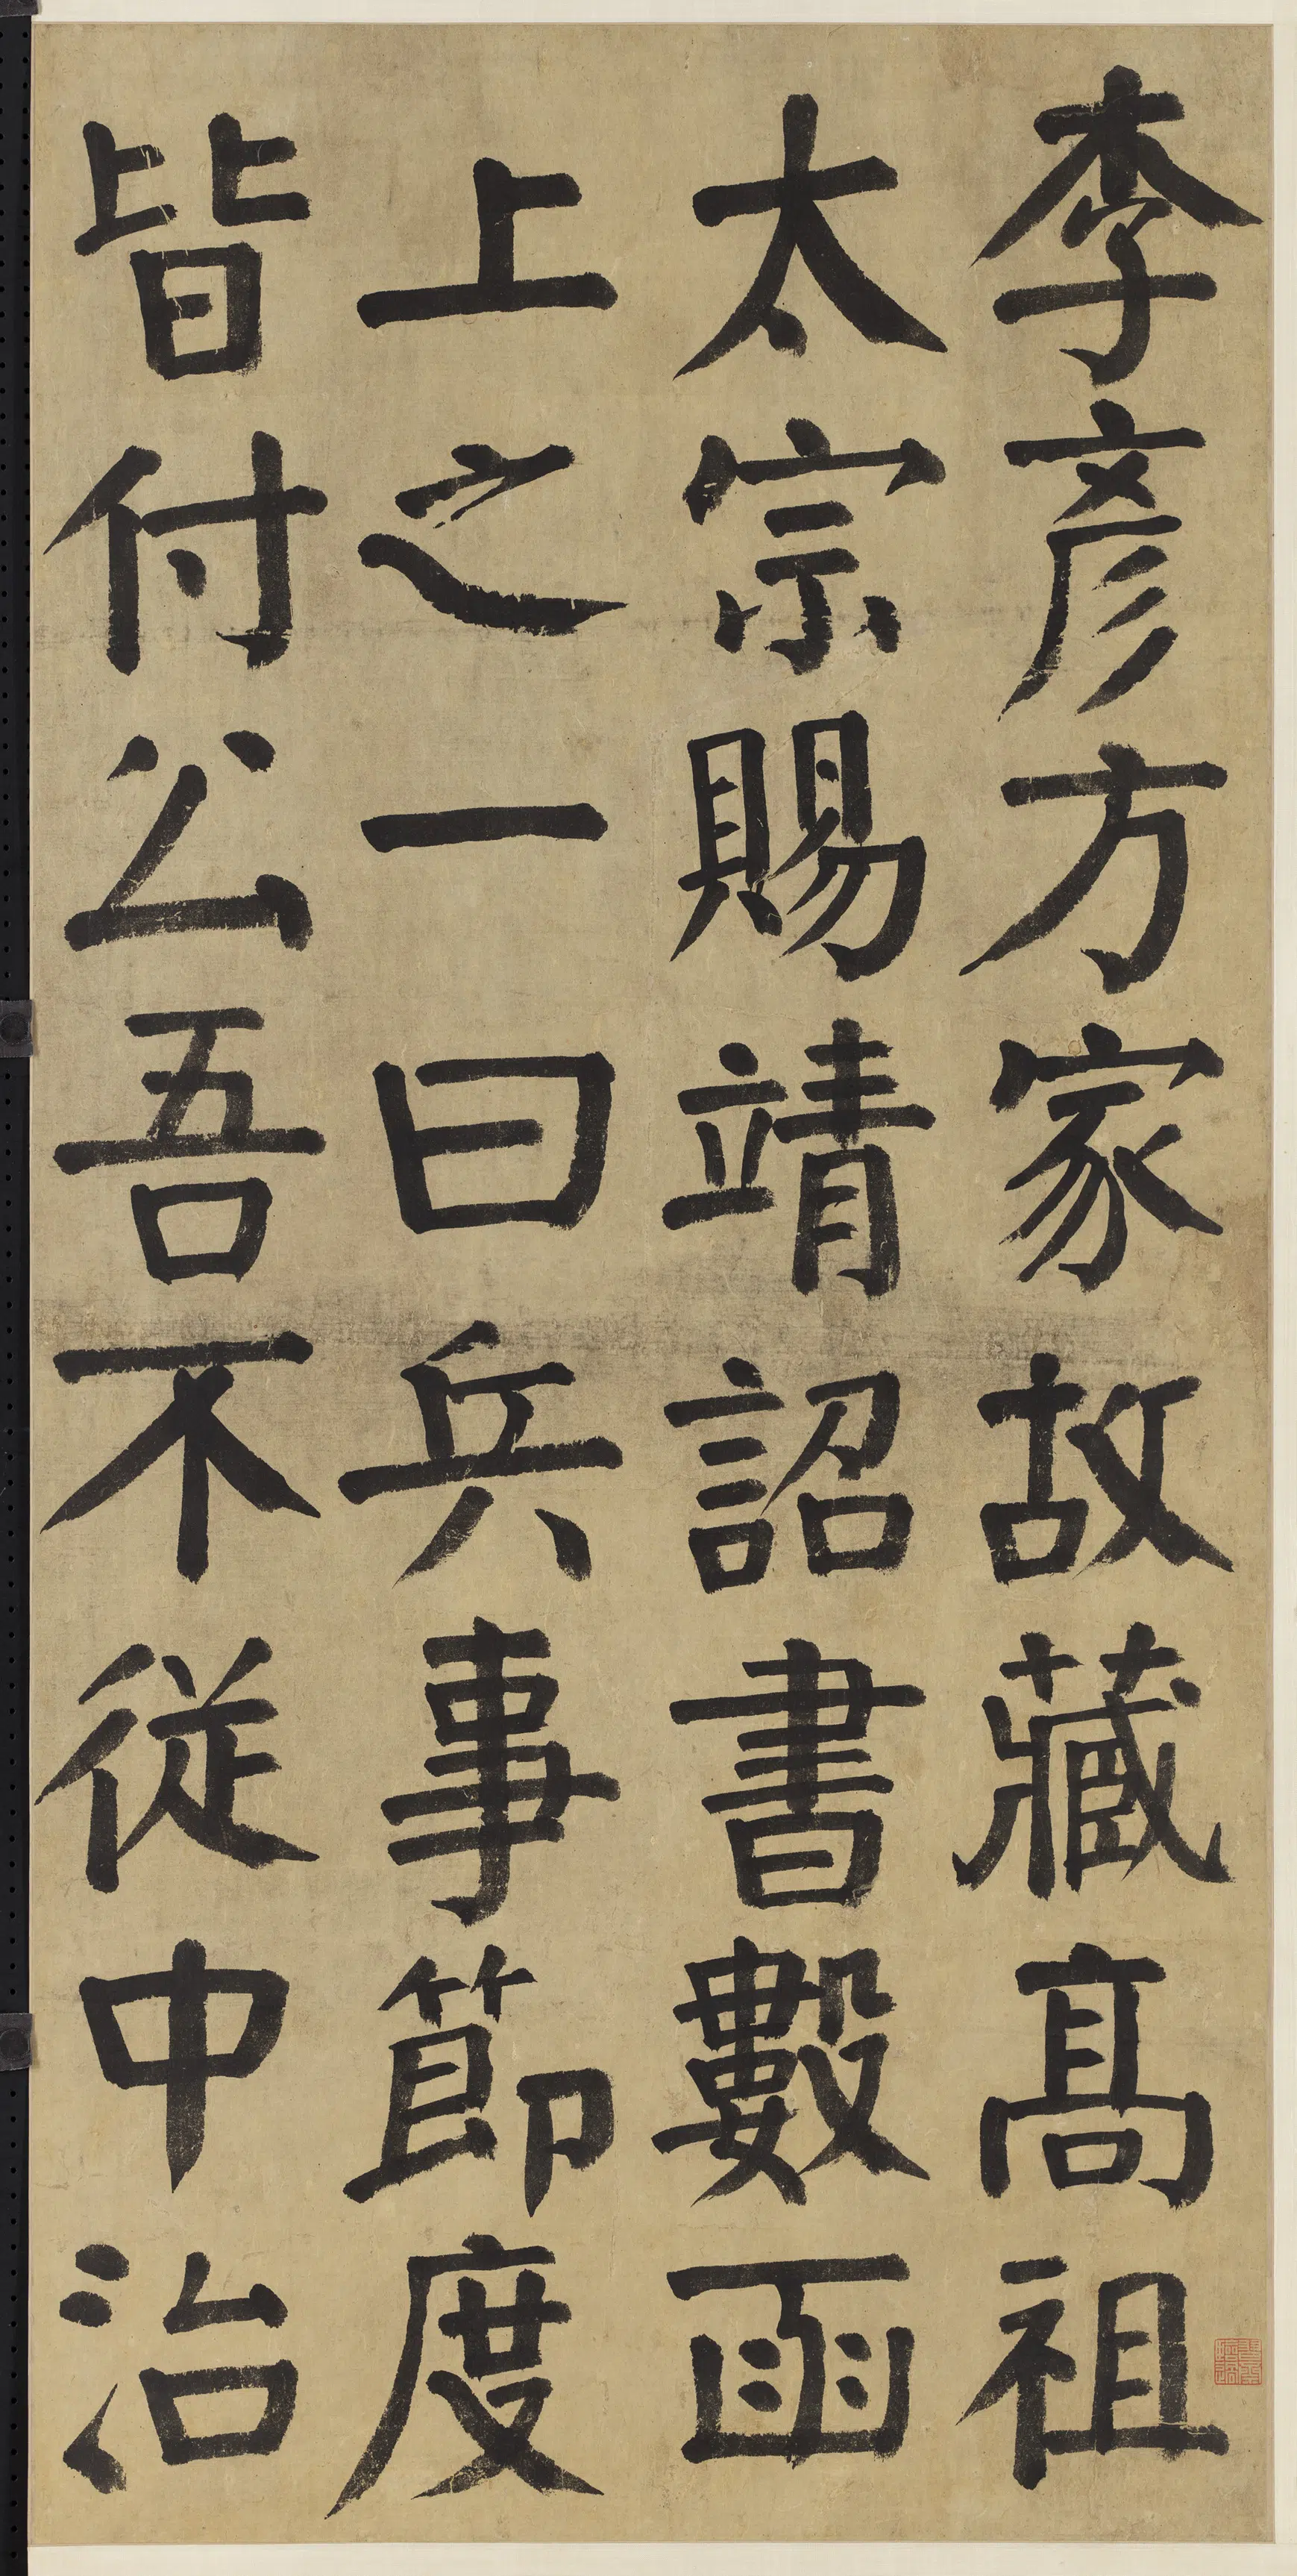 李彥方家故藏髙祖
太宗賜靖詔書數函
上之一曰兵事節度
皆付公吾不従中治